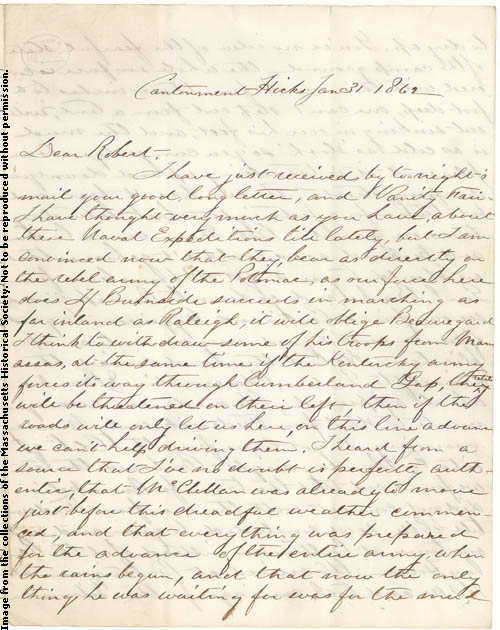 Cantonment Hicks Jan 31 1862
Dear Robert,
I have just received by to-night's
mail your good, long letter, and Vanity Fair.
I have thought very much as you have, about
these Naval Expeditions till lately, but I am
convinced now that they bear as directly on
the rebel army of the Potomac, as our force here
does. If Burnside succeeds in marching as
far inland as Raleigh, it will oblige Beauregard
I think to withdraw some of his troops from Man
assas, at the same time if the Kentucky army
forces its way through Cumberland Gap, they
will be threatened on their left, then if the
roads will only let us here, on this line advance
we can't help driving them. I heard from a
source that I've no doubt is perfectly auth-
entic, that McClellan was already to move
just before this dreadful weather commen-
ced, and that everything was prepared
for the advance of the entire army, when
the rains begun, and that now the only
thing he was waiting for was for the mud
Image from the collections of the Massachusetts Historical Society. Not to be reproduced without permission.